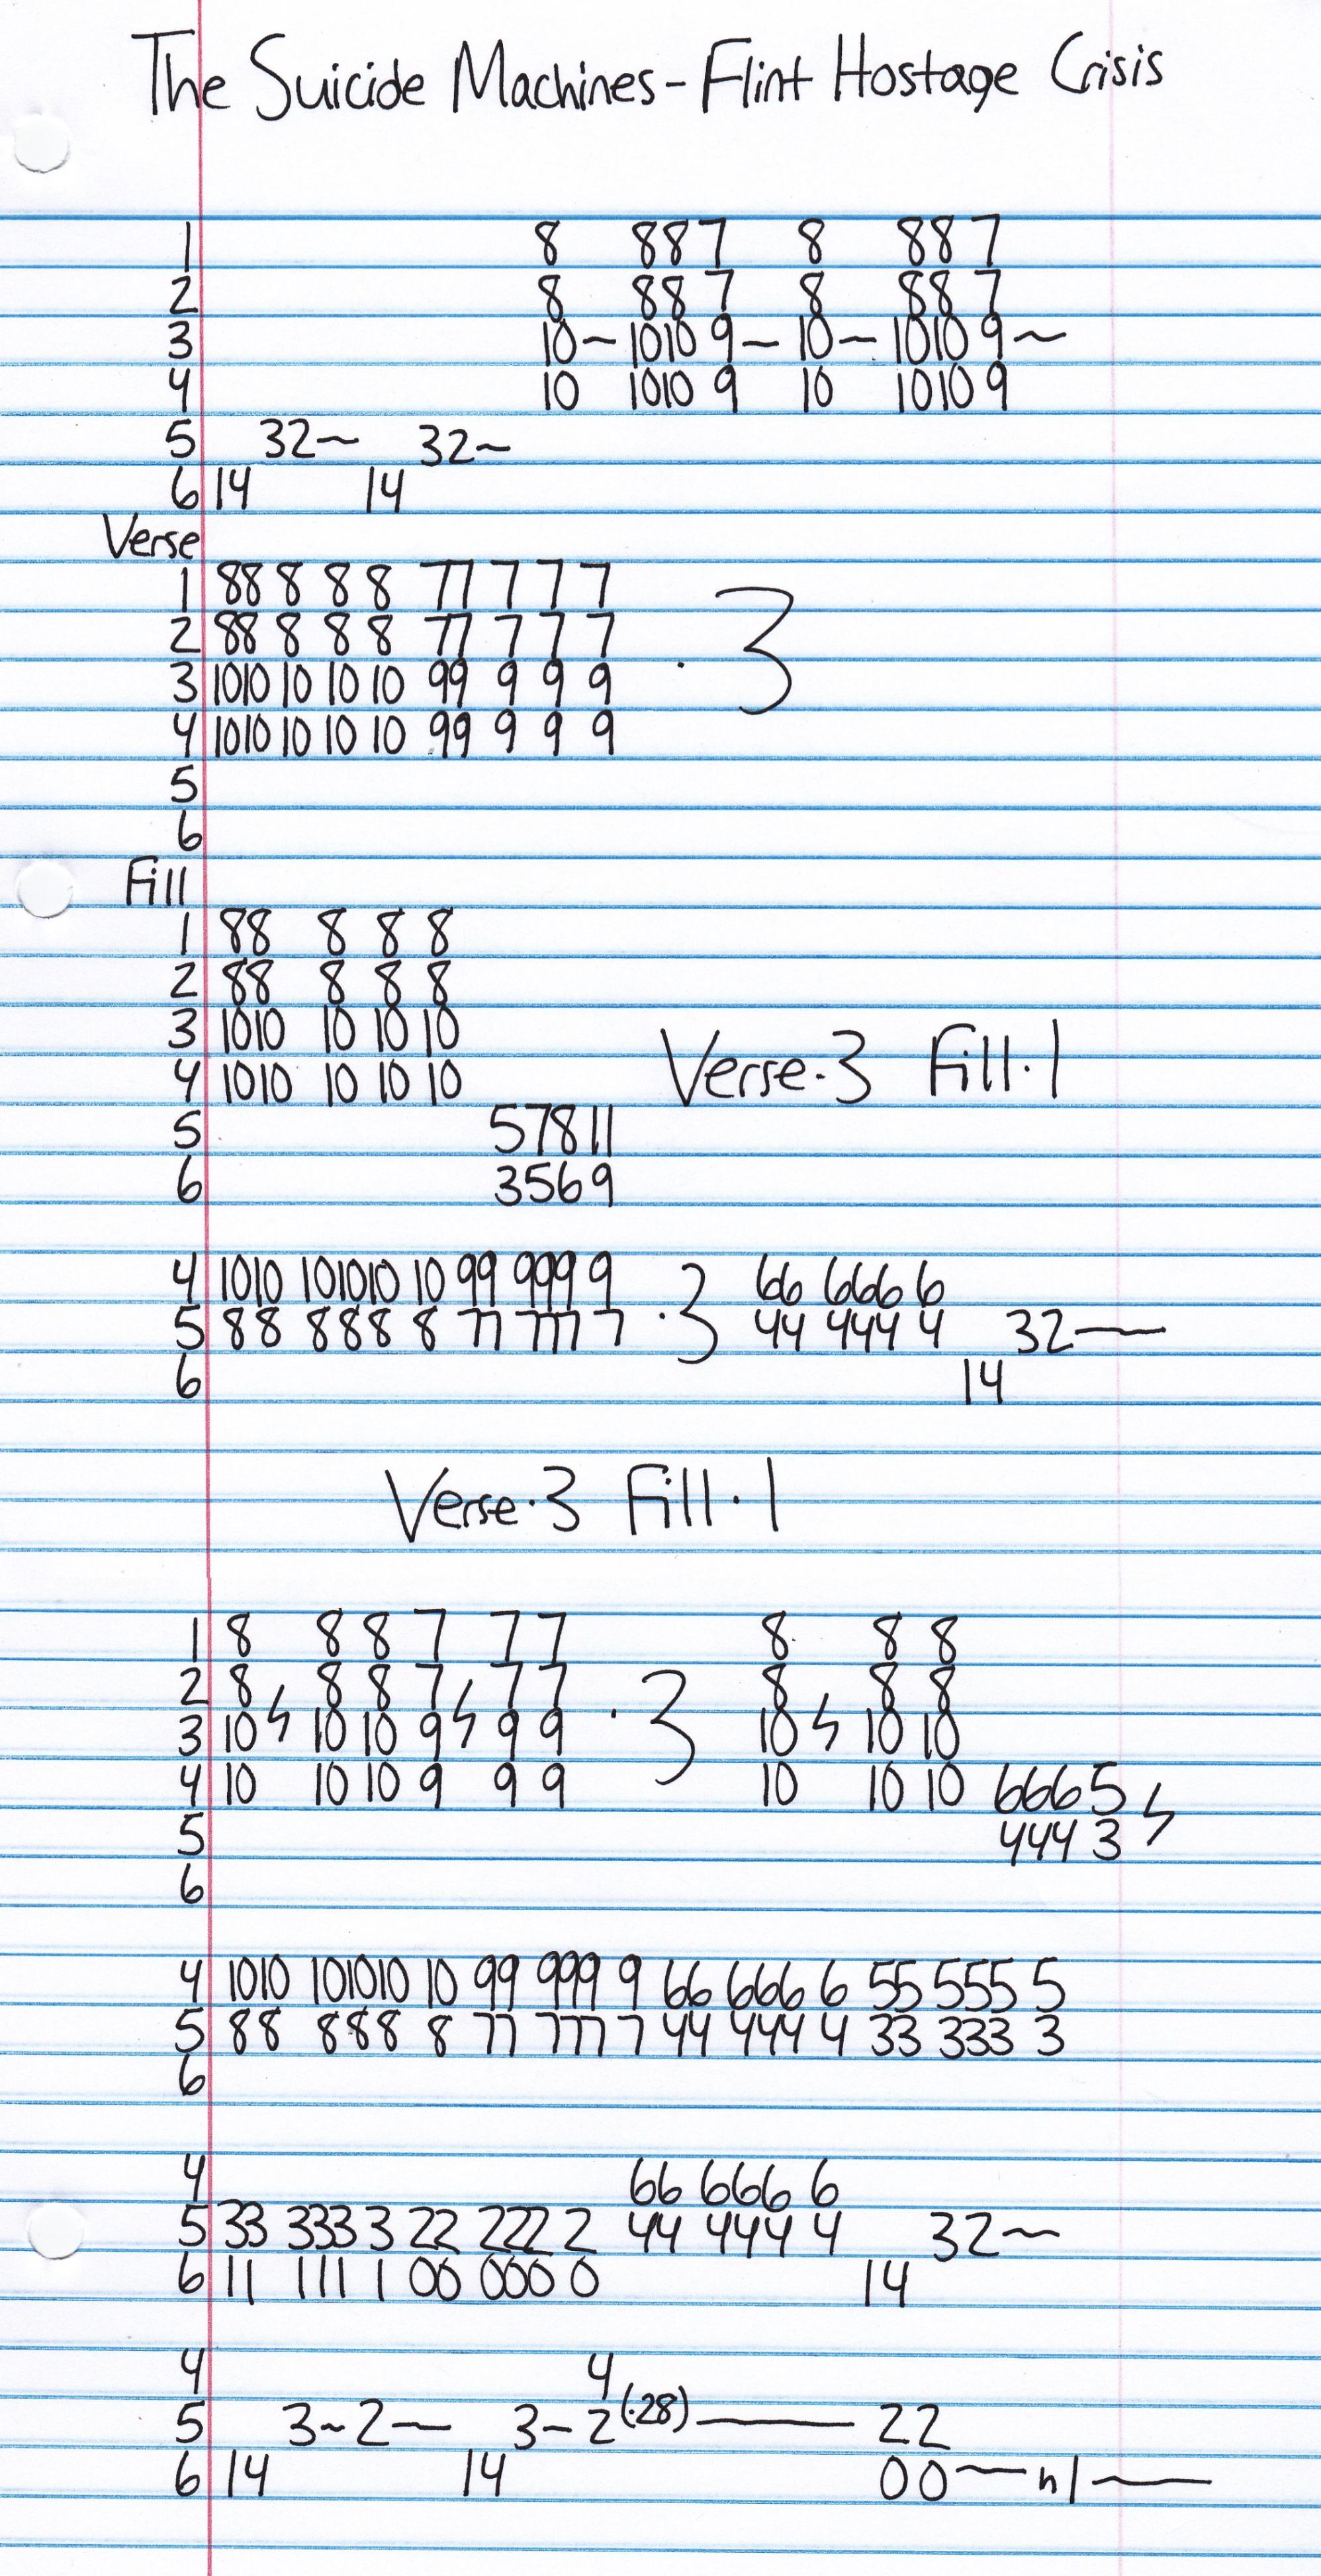 The Suicide Machines - Flint Hostage Crisis
1 8 887 8 887
2 8 887 8 887
3 10~10109~10~10109~
4 10 10109 10 10109
5 32~ 32~
6 14 14
Verse
1 88 8 8 8 77 7 7 7
2 88 8 8 8 77 7 7 7 · 3
3 1010 10 10 10 99 9 9 9
4 1010 10 10 10 99 9 9 9
5
6
Fill
1 88 8 8 8
2 88 8 8 8
3 1010 10 10 10
4 1010 10 10 10 Verse·3 Fill·1
5 57811
6 3569
4 1010 101010 10 99 999 9 66 666 6
5 88 888 8 77 777 7 ·3 44 444 4 32~
6 14
Verse·3 Fill·1
1 8 8 8 7 7 7 8 8 8
2 8 8 8 7 7 7 8 8 8
3 10 10 10 9 9 9 ·3 10 10 10
4 10 10 10 9 9 9 10 10 10 6665
5 4443
6
4 1010 101010 10 99 999 9 66 666 6 55 555 5
5 88 888 8 77 777 7 44 444 4 33 333 3
6
4 66 666 6
5 33 333 3 22 222 2 44 444 4 32~
6 11 111 1 00 000 0 14
4 4
5 3~2~ 3-2(·28)— 22
6 14 14 00~h1~